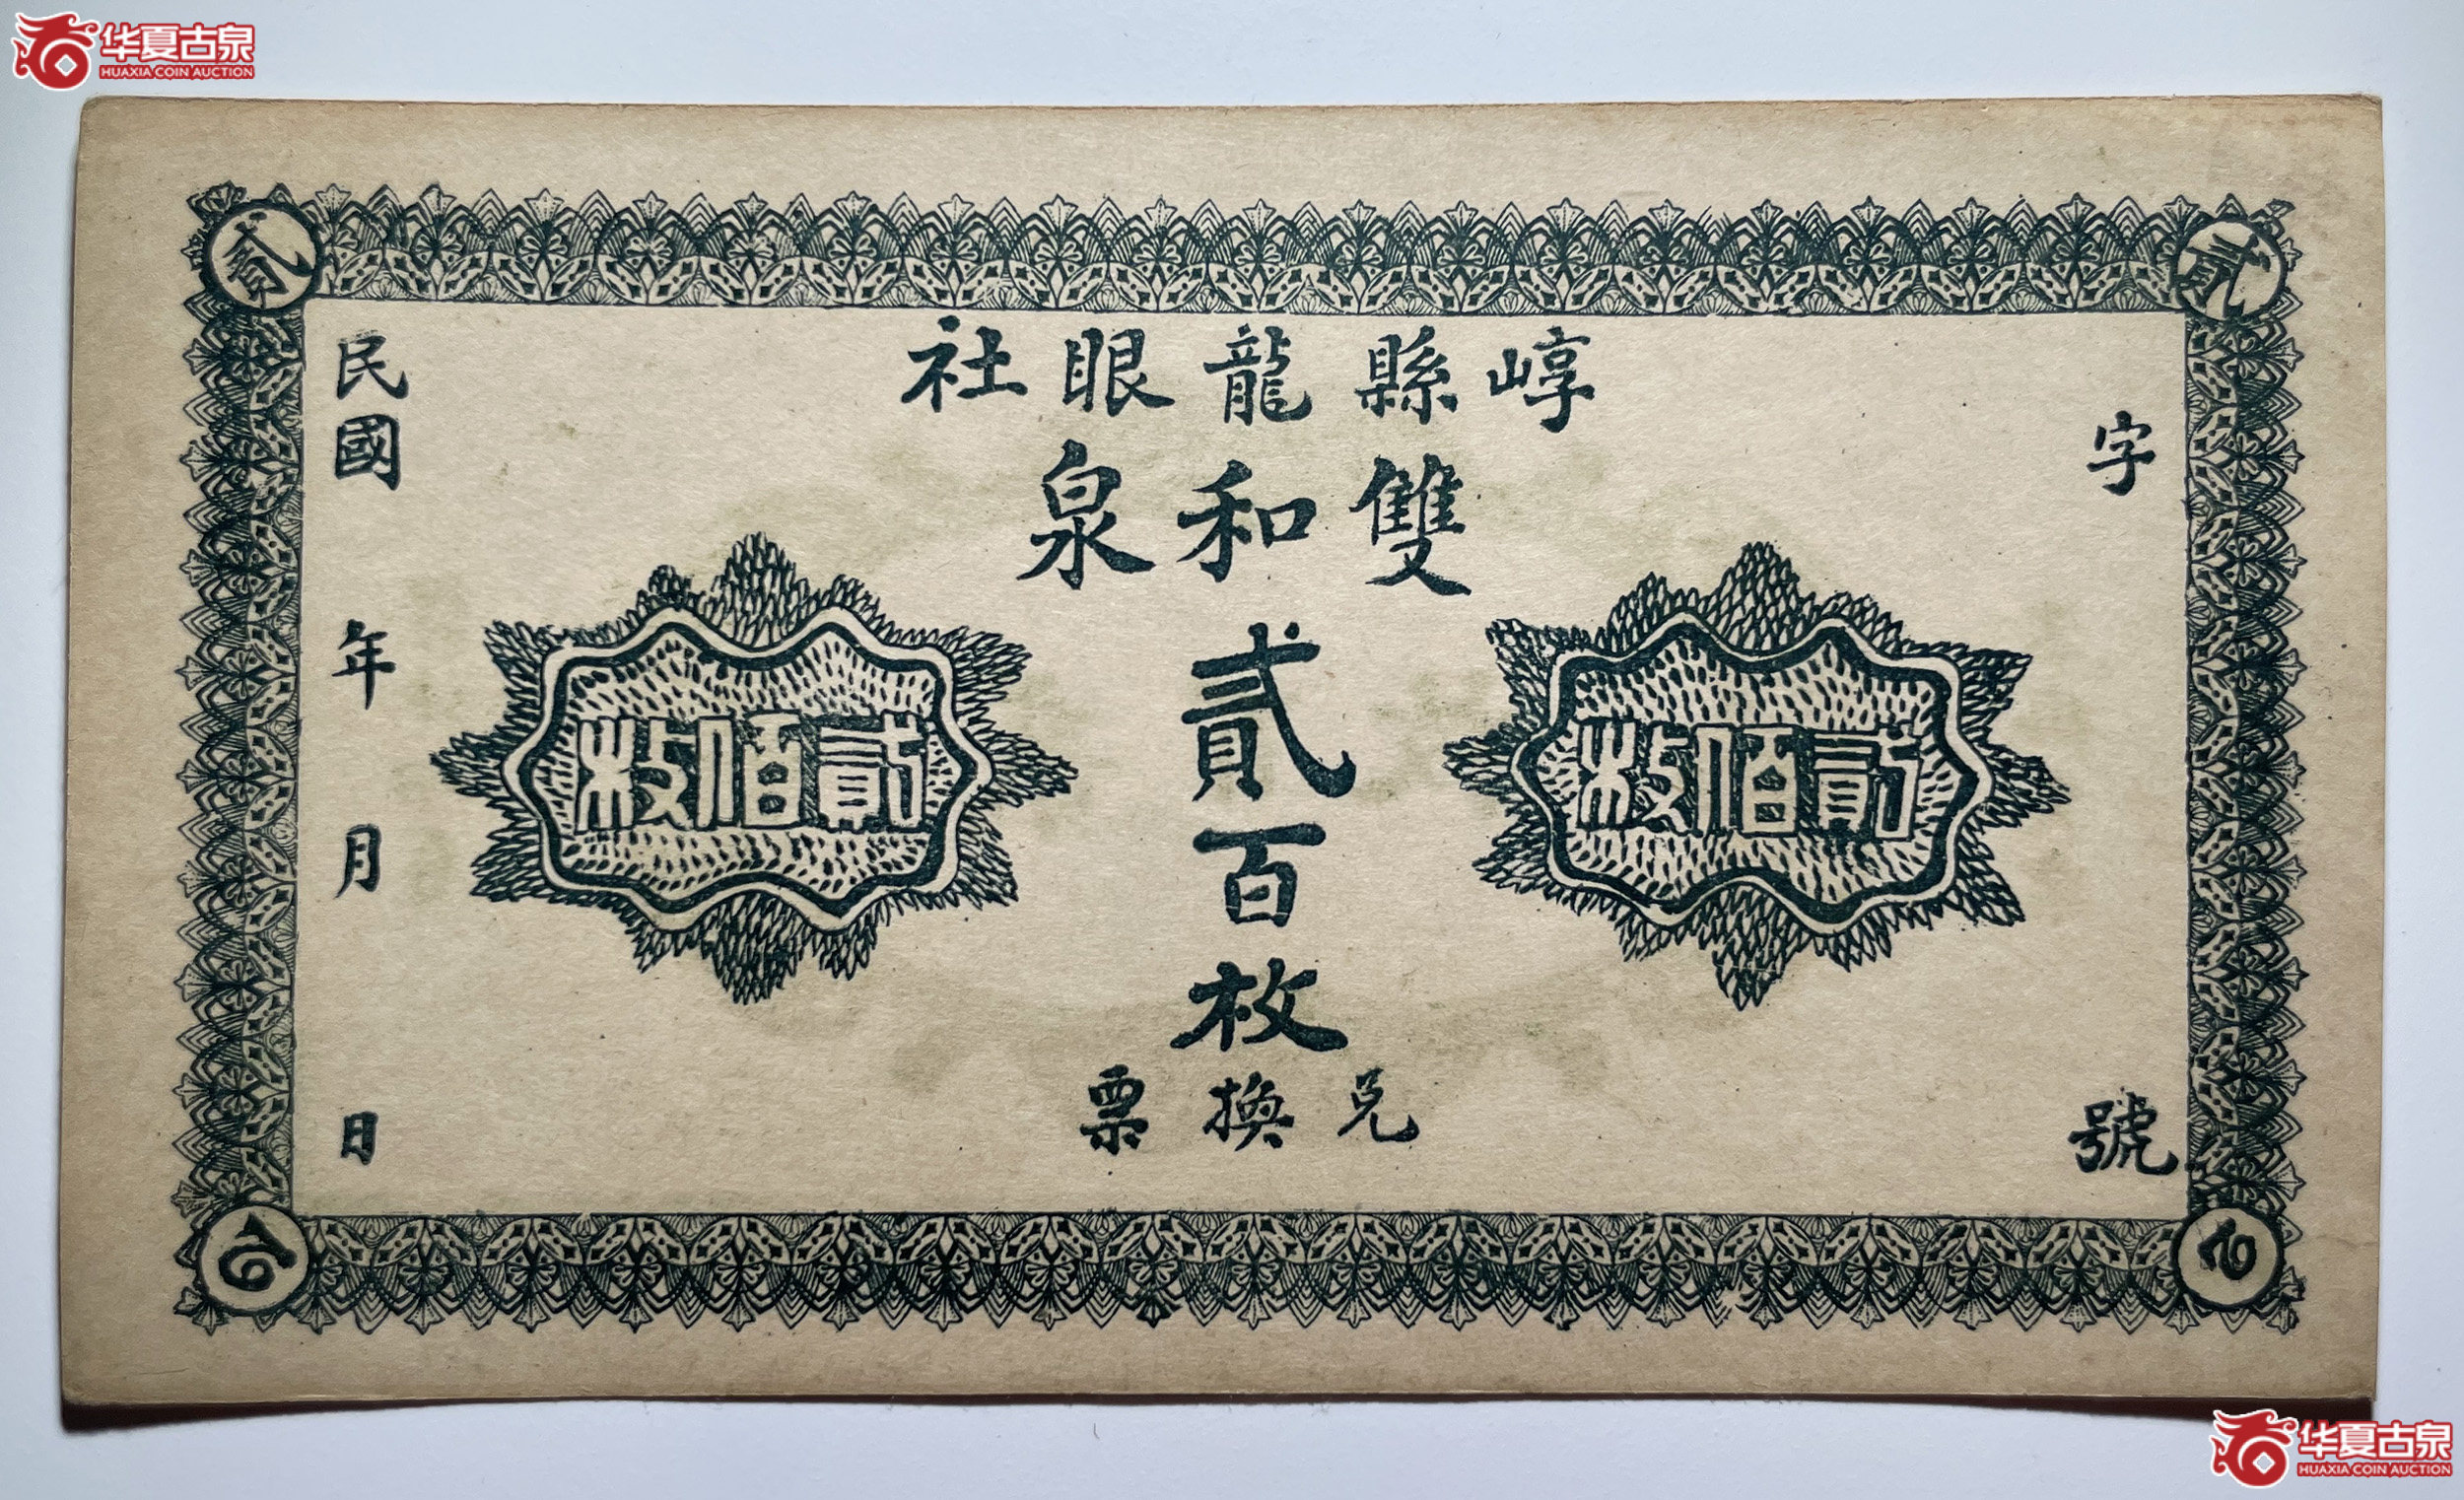 华夏古泉
HUAXIA COIN AUCTION
貳
貳
崞縣龍眼社
雙和泉
貳百枚
兌換票
貳佰枚
貳佰枚
字
號
民國
年
月
日
华夏古泉
HUAXIA COIN AUCTION